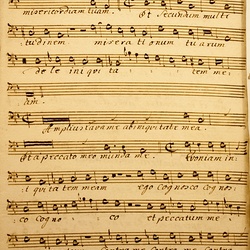 misericordiam tuam. Et secundum multi
tudinem miserationum tuarum
dele iniquitatem me
am.
Amplius lava me ab iniquitate mea.
Et a peccato meo munda me. Quoniam in
iquitatem meam ego cognosco cognos
co cogno co et peccatum me